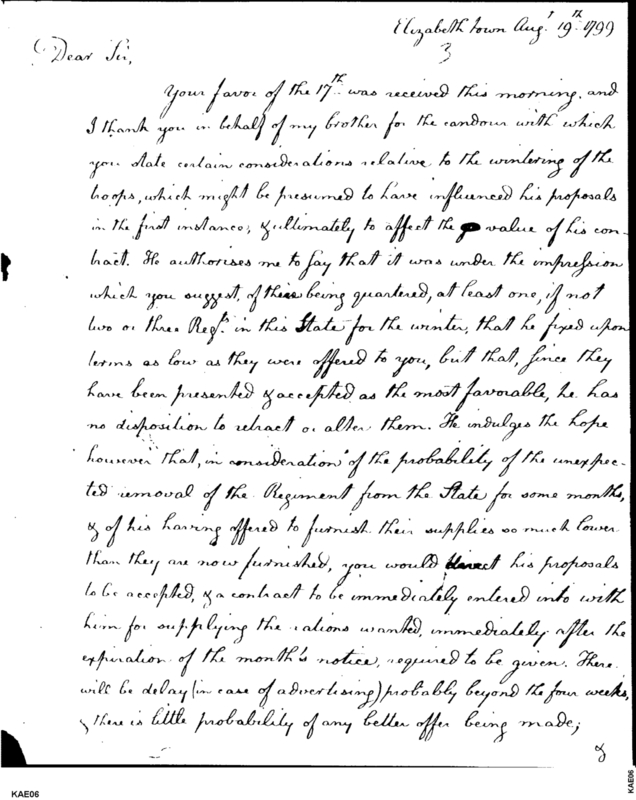 Elizabeth town Augt 19th 1799
3
Dear Sir,
Your favor of the 17th was received this morning, and
I thank you in behalf of my brother for the candour with which
you state certain considerations relative to the wintering of the
troops, which might be presumed to have influenced his proposals
in the first instance, & ultimately to affect the value of his con-
tract. He authorises me to say that it was under the impression
which you suggest, of there being quartered, at least one, if not
two or three Regts. in this State for the winter, that he fixed upon
terms as low as they were offered to you, but that, since they
have been presented & accepted as the most favorable, he has
no disposition to retract or alter them. He indulges the hope
however that, in consideration of the probability of the unexpec-
ted removal of the Regiment from the State for some months,
& of his having offered to furnish their supplies so much lower
than they are now furnished, you would direct his proposals
to be accepted, & a contract to be immediately entered into with
him for supplying the rations wanted, immediately after the
expiration of the month's notice, required to be given. There
will be delay (in case of advertising) probably beyond the four weeks,
& there is little probability of any better offer being made;
&
KAE06
KAE06